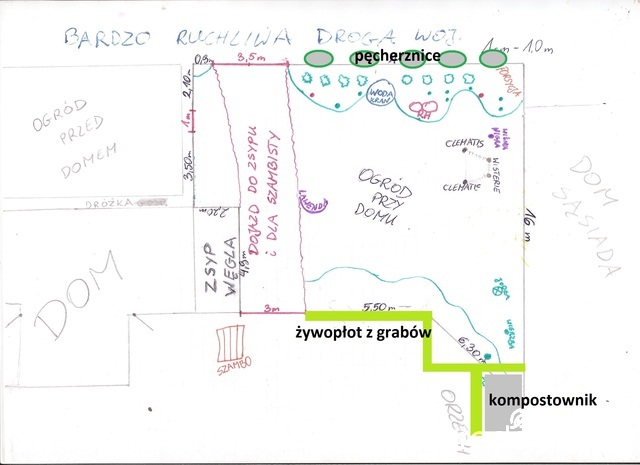 BARDZO RUCHLIWA DROGA WOJ.
1 cm - 1.0 m
pęcherznice
0,9m
3,5m
FORSYCJA
2,10m
1m
3,50m
OGRÓD
PRZED
DOMEM
WODA
KRAN
RH
CLEMATIS
WISTERIE
CLEMATIS
DOJAZD DO ZSYPU
i DLA SZAMBISTY
OGRÓD
PRZY
DOMU
LAWENDA
DOM
SĄSIADA
16 m
DRÓŻKA
2,20m
ZSYP
WĘGLA
4,9m
DOM
3m
5,50m
żywopłot z grabów
6,30m
SZAMBO
ORZECH
kompostownik